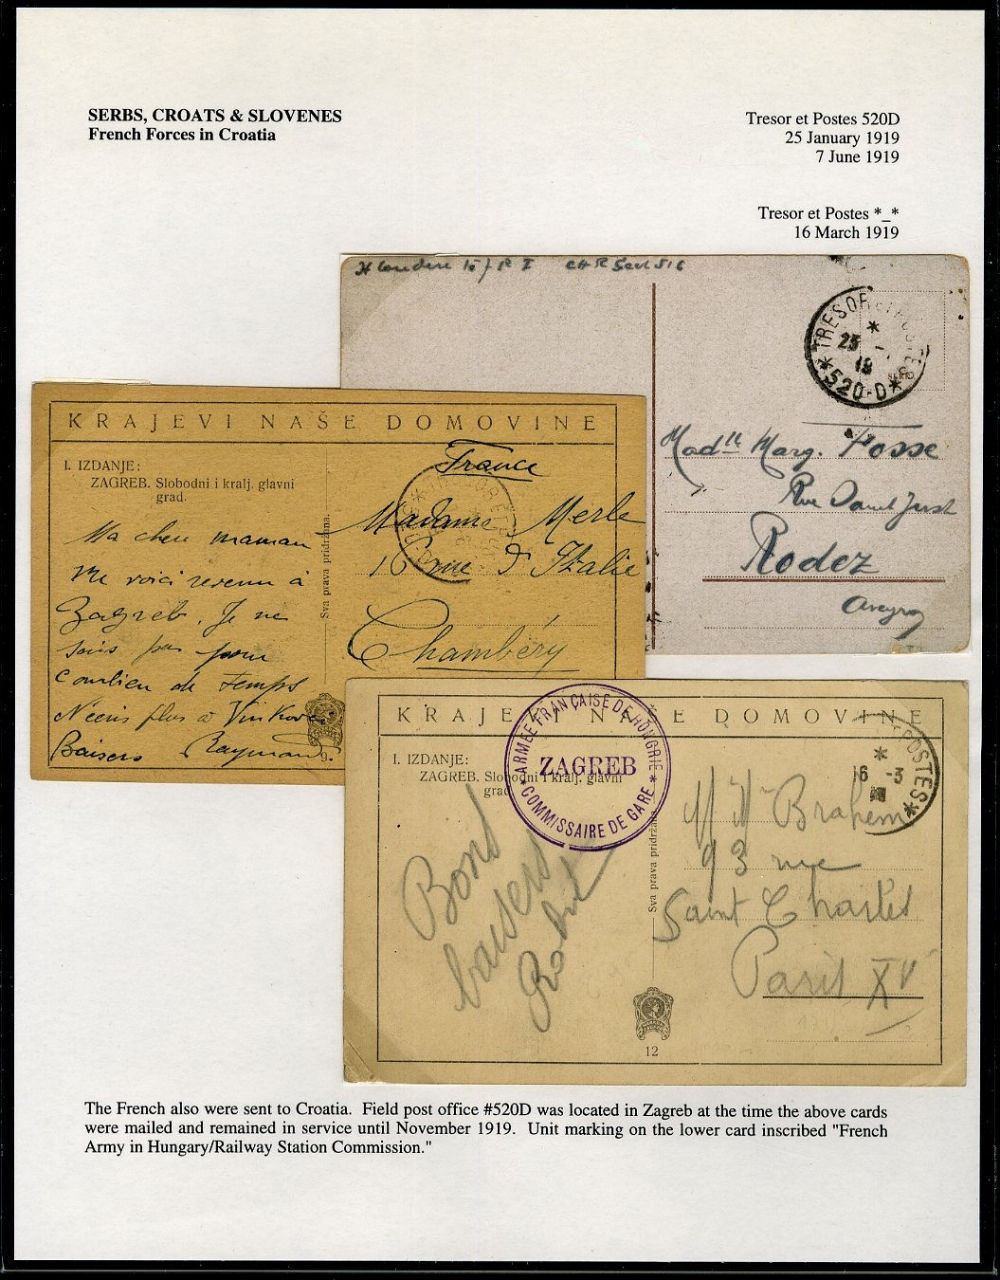 SERBS, CROATS & SLOVENES
French Forces in Croatia
Tresor et Postes 520D
25 January 1919
7 June 1919
Tresor et Postes *_*
16 March 1919
TRESOR ET POSTES
*
19
*520-D*
Madlle Marg. Fosse
Rue
Rodez
KRAJEVI NAŠE DOMOVINE
I. IZDANJE:
ZAGREB. Slobodni i kralj. glavni
grad.
Sva prava pridržana.
Ma chere maman
me voici revenu à
Zagreb. Je ne
sais pas pour
combien de temps
Baisers Raymond.
9.
France
Madame Merle
16 rue d'Italie
Chambéry
KRAJEVI NAŠE DOMOVINE
I. IZDANJE:
ZAGREB. Slobodni i kralj. glavni
grad.
Sva prava pridržana.
ARMÉE FRANÇAISE DE HONGRIE
ZAGREB
* COMMISSAIRE DE GARE *
POSTES*
*
16 -3
Bons
baisers
Brahem
93 rue
Saint Charles
Paris XV
12
The French also were sent to Croatia. Field post office #520D was located in Zagreb at the time the above cards
were mailed and remained in service until November 1919. Unit marking on the lower card inscribed "French
Army in Hungary/Railway Station Commission."